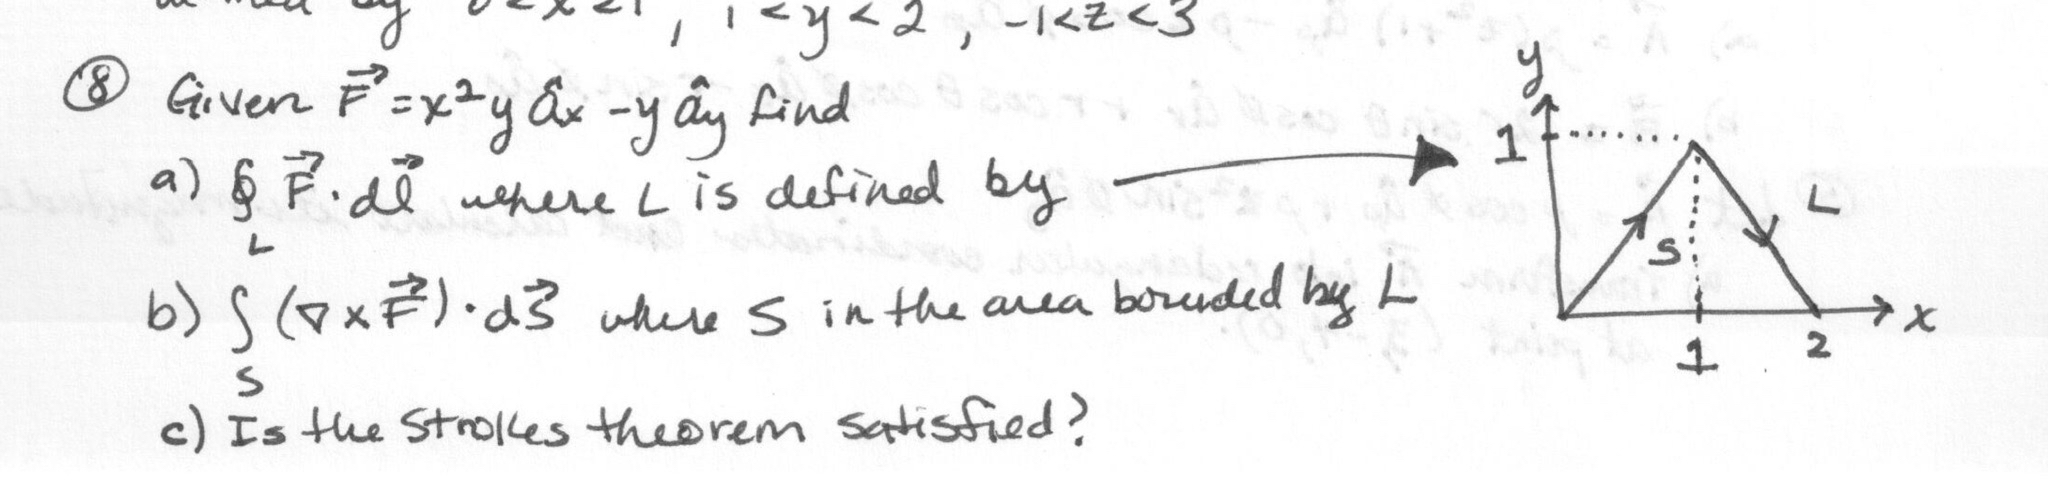 by 0<x<1, 1<y<2, -1<z<3
⑧ Given F⃗ = x²y âx - y ây find
a) ∮_L F⃗·dl⃗ where L is defined by
b) ∫_S (∇×F⃗)·dS⃗ where S in the area bounded by L
c) Is the Strokes theorem satisfied?
y
1
L
S
x
1
2